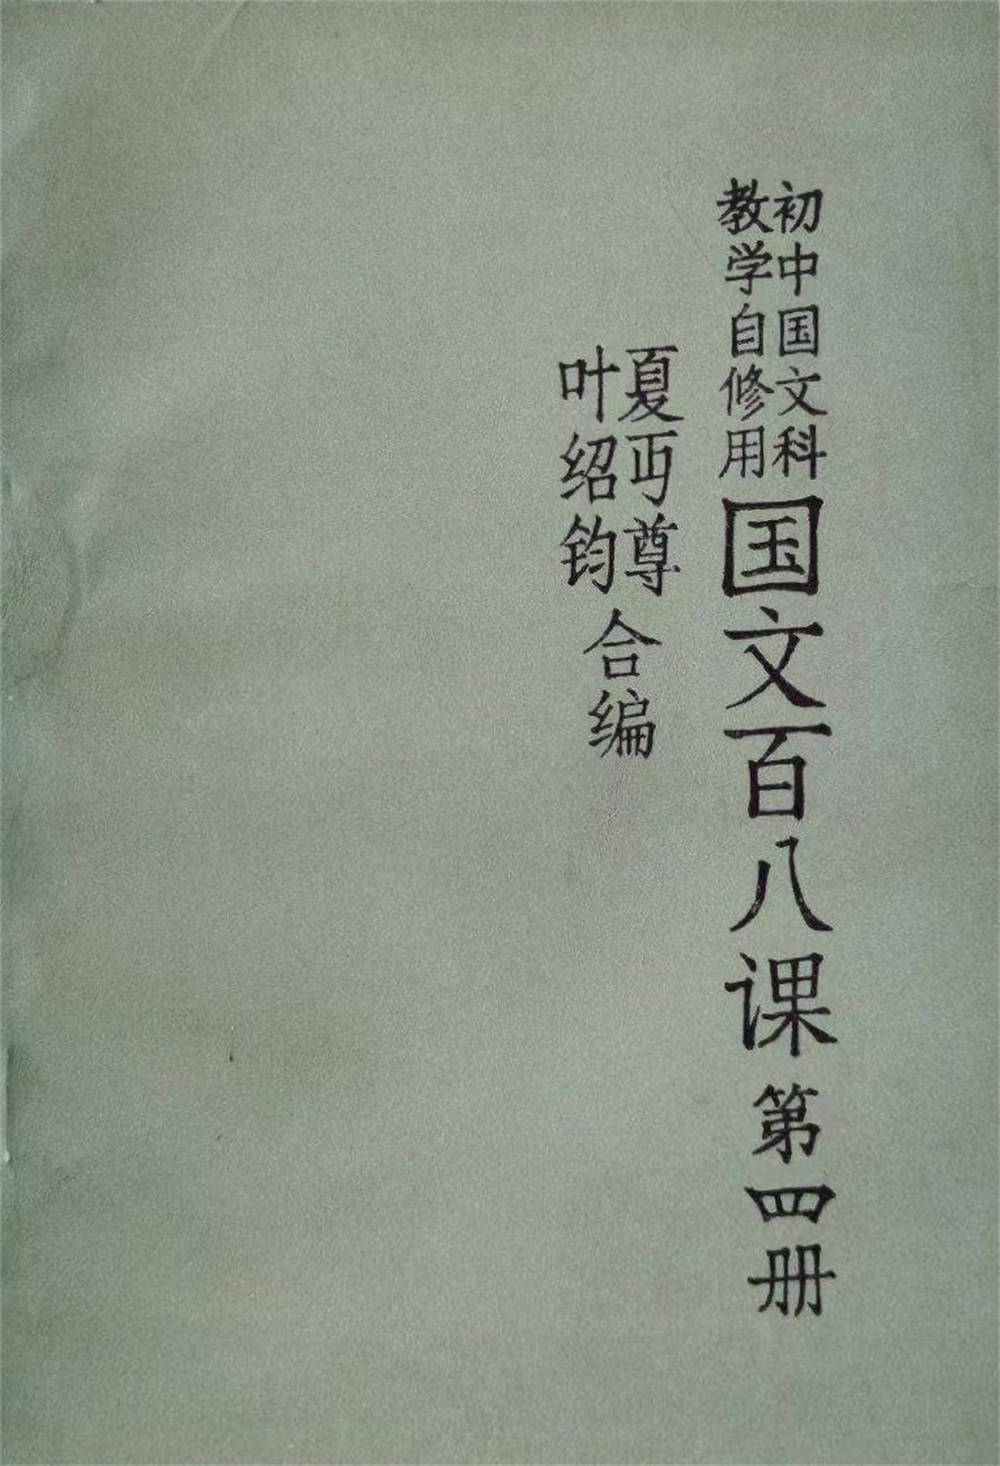 初中国文科
教学自修用
国文百八课 第四册
夏丏尊
叶绍钧
合编